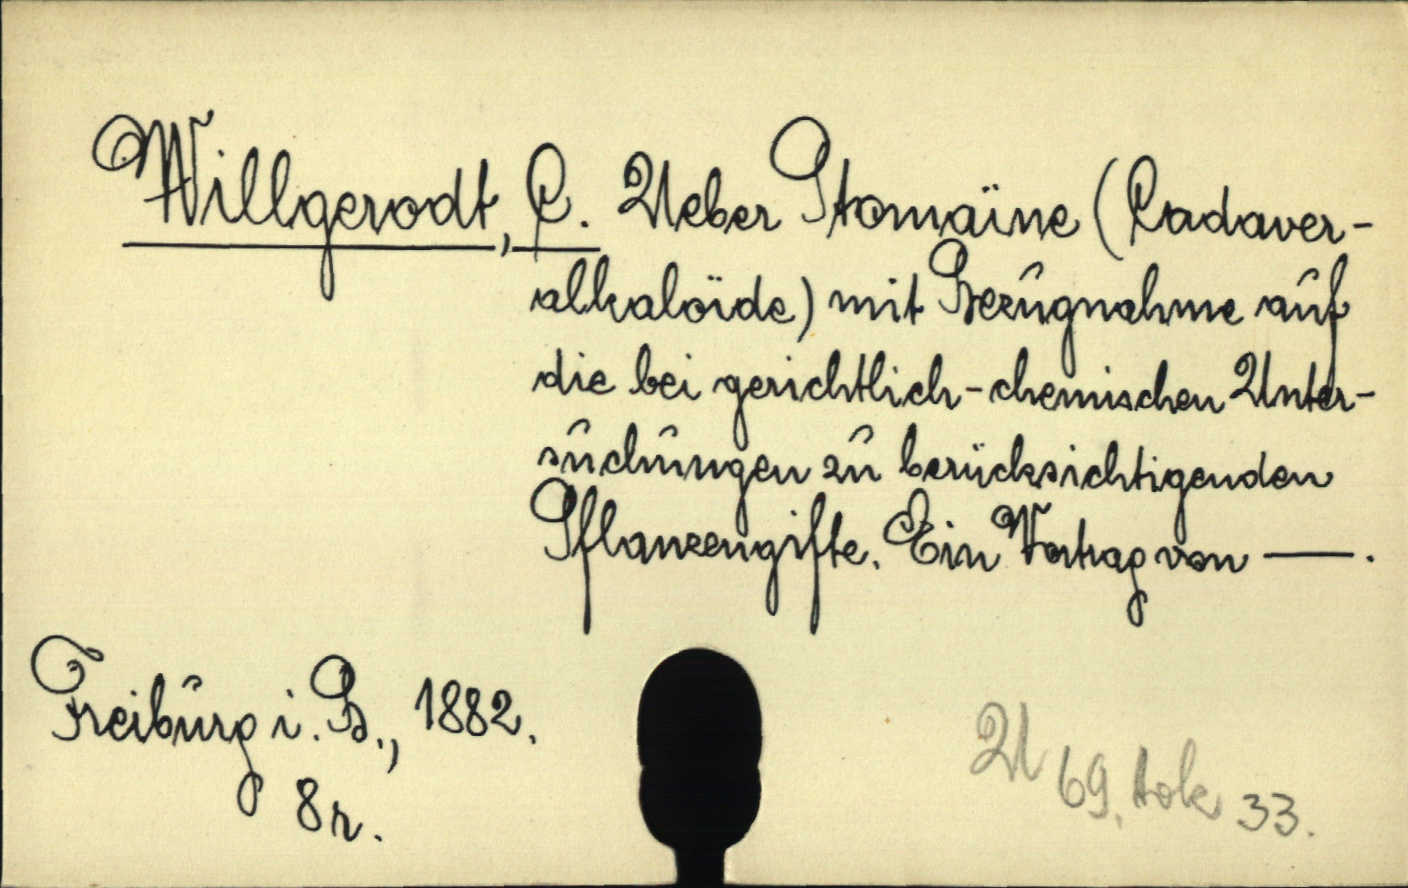 Willgerodt, C. Ueber Ptomaïne (Cadaver-
alkaloïde) mit Bezugnahme auf
die bei gerichtlich-chemischen Unter-
suchungen zu berücksichtigenden
Pflanzengifte. Ein Vortrag von —.
Freiburg i. B., 1882.
8r.
U 69, tok 33.